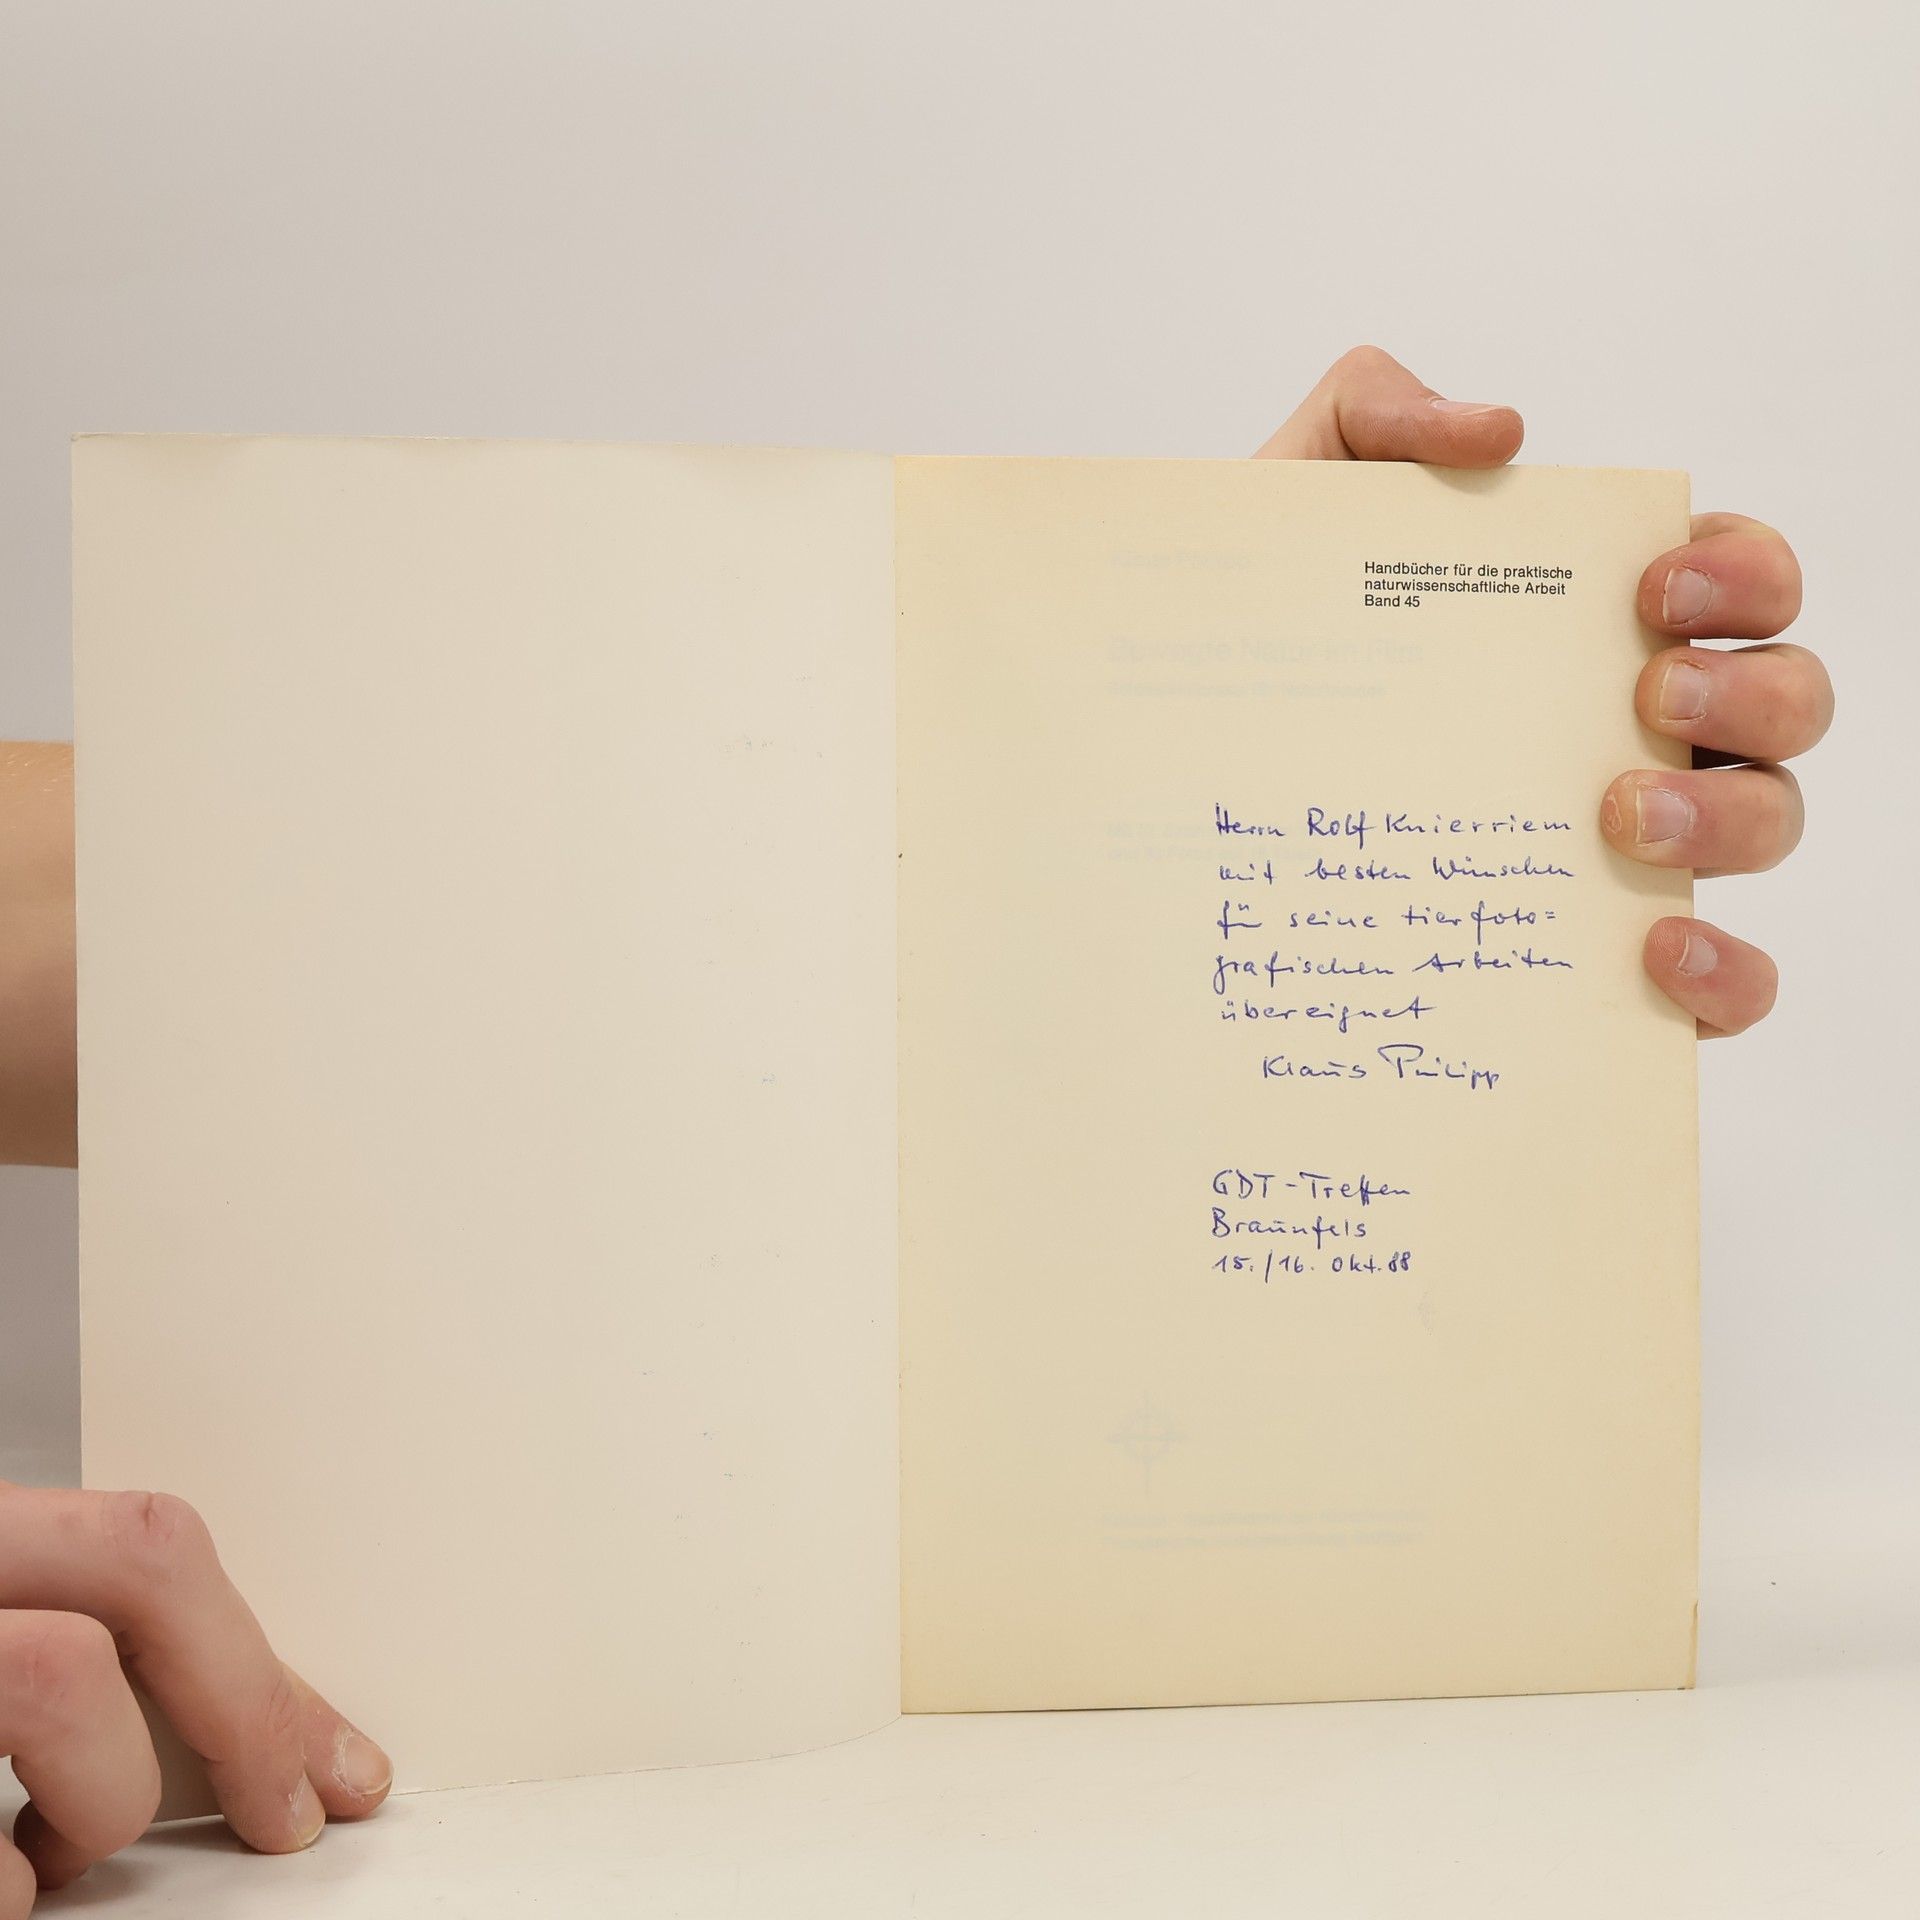 Handbücher für die praktische
naturwissenschaftliche Arbeit
Band 45
Klaus Philipp
Bewegte Natur im Film
Herrn Rolf Knierriem
mit besten Wünschen
für seine tierfoto=
grafischen Arbeiten
übereignet
Klaus Philipp
GDT-Treffen
Braunfels
15./16. Okt. 88